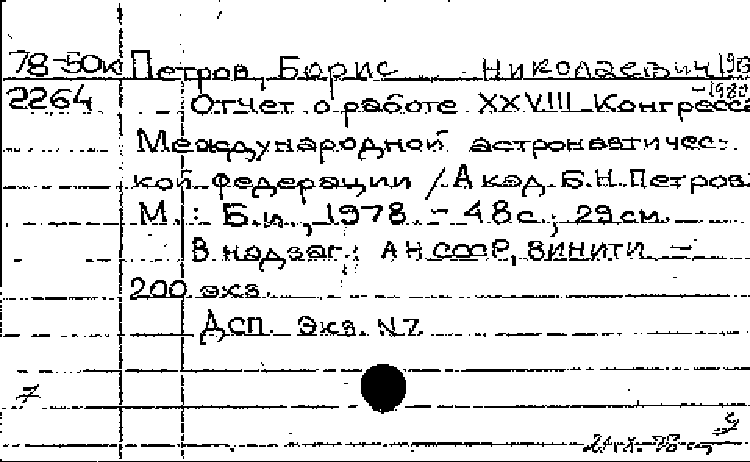 78-50к Петров, Борис Николаевич 191
-1980
2264 Отчет о работе XXVIII Конгресса
Международной астронавтичес-
кой федерации / Акад. Б.Н. Петров.
М.: Б.и., 1978. - 48с.; 29см.
В надзаг.: АН СССР, ВИНИТИ. -
200 экз.
Дсп. Экз. N7
7